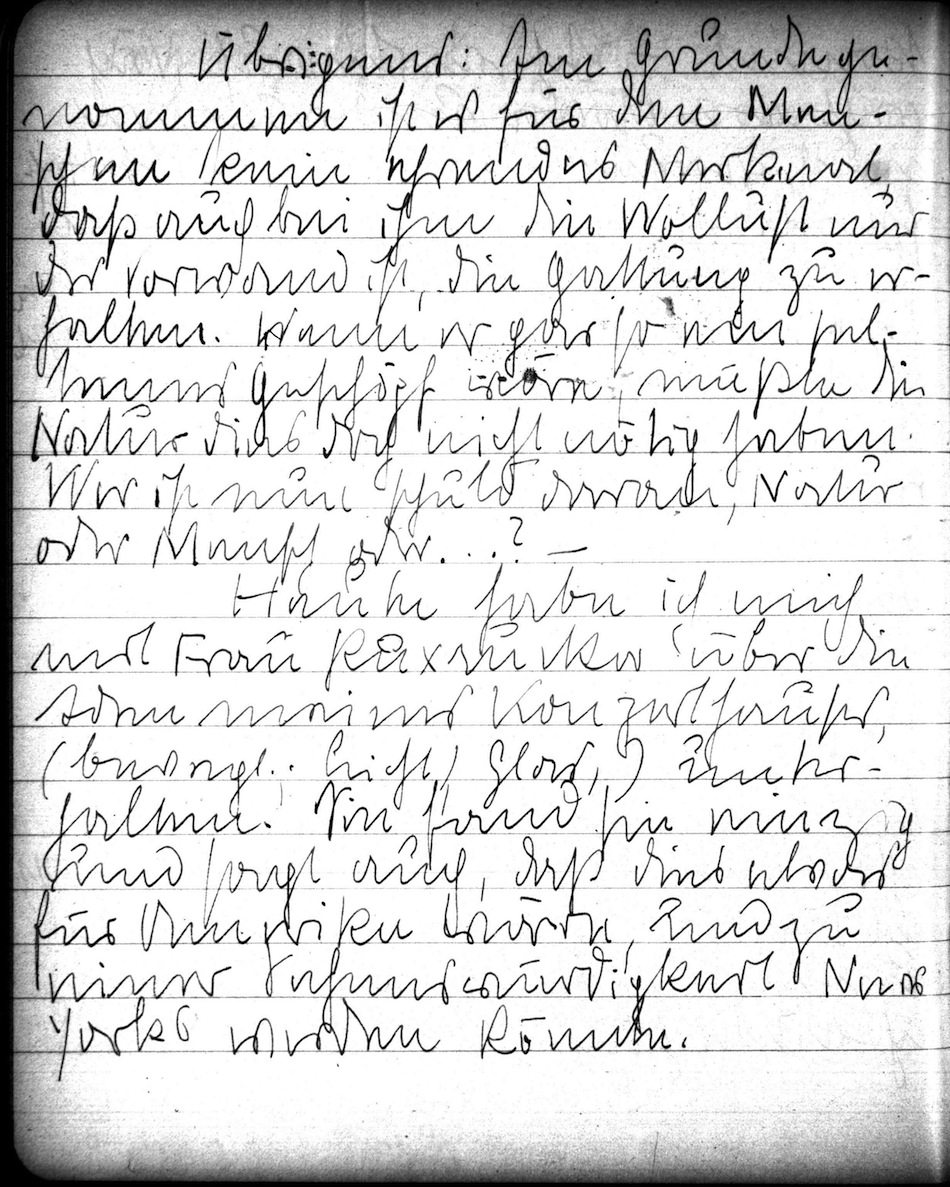 Übrigens: Im Grunde ge-
nommen ist es für den Men-
schen kein ehrendes Merkmal,
daß auch bei ihm die Wollust nur
der Vorwand ist, die Gattung zu er-
halten. Wenn er gar so ein sel-
tenes Geschöpf wäre, müßte die
Natur dies doch nicht nötig haben.
Wer ist nun schuld daran, Natur
oder Mensch oder...? —
Heute habe ich mich
mit Frau über die
Idee meines Konzerthauses,
(bewegl.; Licht, Glas,) unter-
halten. Sie fand sie einzig
und sagt auch, daß dies etwas
für Amerika wäre, und zu
einer Sehenswürdigkeit New
Yorks werden könnte.